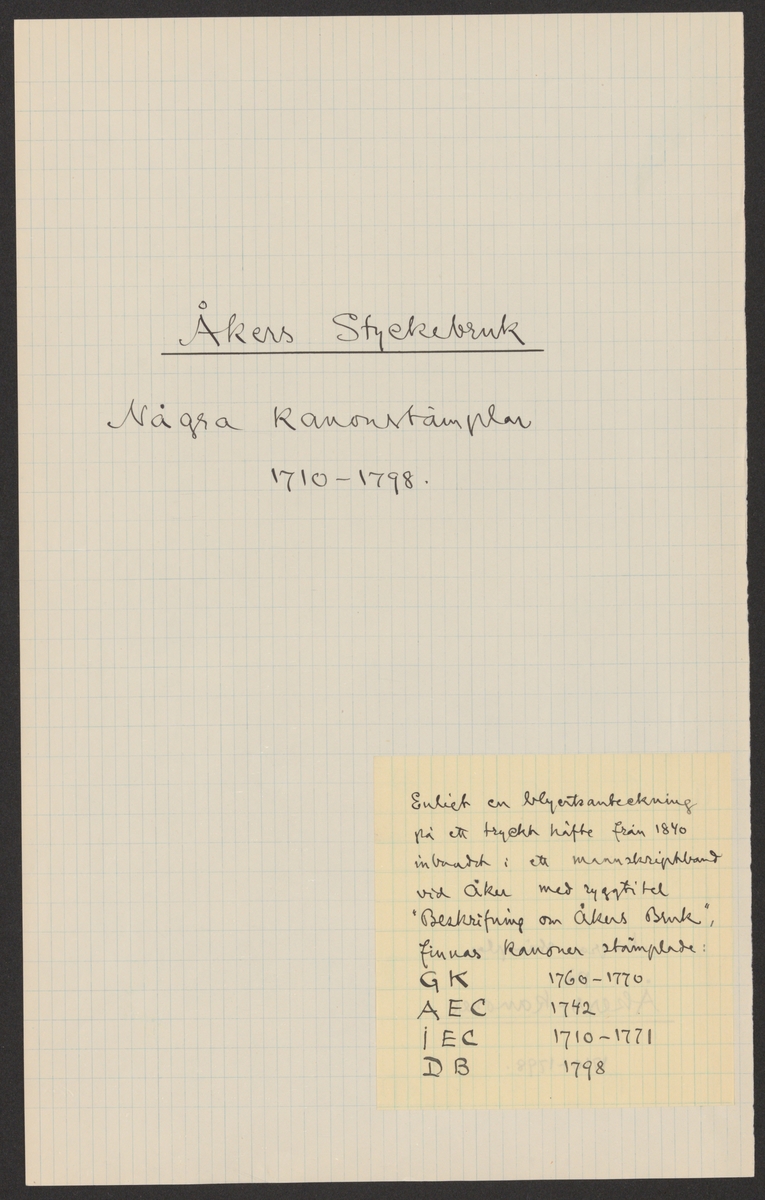 Åkers Styckebruk
Några kanonstämplar
1710-1798.
Enligt en blyertsanteckning
på ett tryckt häfte från 1840
inbundet i ett manuskriptband
vid Åker med ryggtitel
"Beskrifning om Åkers Bruk",
finnas kanoner stämplade:
G K 1760-1770
A E C 1742
I E C 1710-1771
D B 1798